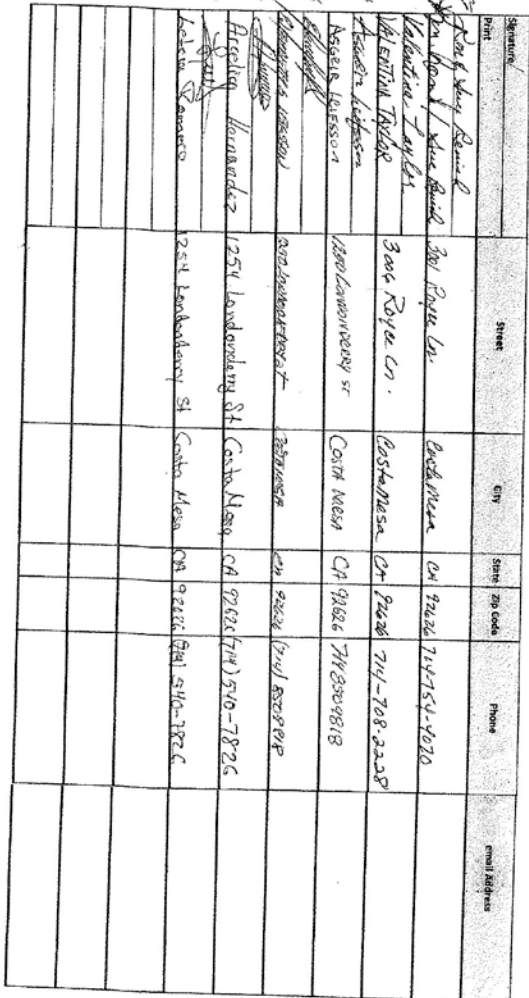 Signature/
Print
Street
City
State
Zip Code
Phone
email Address
301 Royce Ln.
Costa Mesa
CA
92626
714-754-4070
Valentina Taylor
VALENTINA TAYLOR
3006 Royce Ln.
Costa Mesa
CA
92626
714-708-2228
1250 LONDONDERRY ST
COSTA MESA
CA
92626
714 8509818
COSTA MESA
CA
92626
(714) 8509818
Angelica Hernandez
1254 Londonderry St
Costa Mesa
CA
92626
(714) 540-7826
Romero
1254 Londonderry St
Costa Mesa
CA
92626
(714) 540-7826